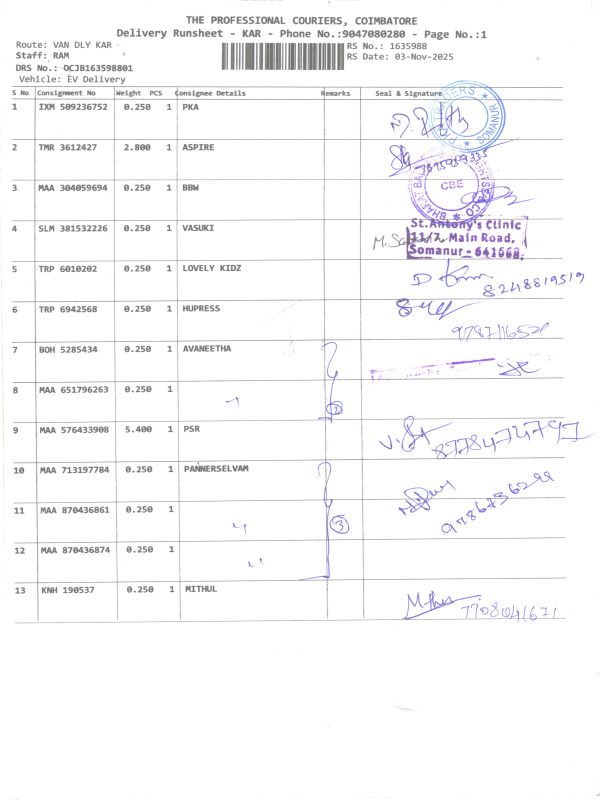 THE PROFESSIONAL COURIERS, COIMBATORE
Delivery Runsheet - KAR - Phone No.:9047080280 - Page No.:1
Route: VAN DLY KAR RS No.: 1635988
Staff: RAM RS Date: 03-Nov-2025
DRS No.: OCJB163598801
Vehicle: EV Delivery
S No Consignment No Weight PCS Consignee Details Remarks Seal & Signature
1 IXM 509236752 0.250 1 PKA
SOMANUR
2 TMR 3612427 2.800 1 ASPIRE
CBE
3 MAA 304059694 0.250 1 BBW
4 SLM 381532226 0.250 1 VASUKI
St.Antony's Clinic
11/7, Main Road,
Somanur - 641668.
5 TRP 6010202 0.250 1 LOVELY KIDZ
8248819519
6 TRP 6942568 0.250 1 HUPRESS
7 BOH 5285434 0.250 1 AVANEETHA
8 MAA 651796263 0.250 1 "
9 MAA 576433908 5.400 1 PSR
8778474797
10 MAA 713197784 0.250 1 PANNERSELVAM
11 MAA 870436861 0.250 1 " 3
12 MAA 870436874 0.250 1 "
13 KNH 190537 0.250 1 MITHUL
7708041671